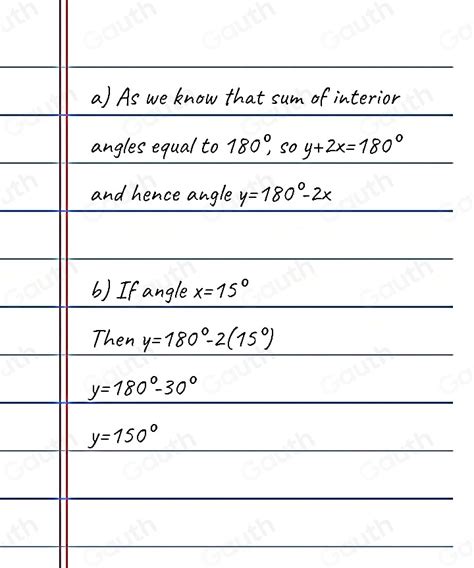 a) As we know that sum of interior
angles equal to 180°, so y+2x=180°
and hence angle y=180°-2x
b) If angle x=15°
Then y=180°-2(15°)
y=180°-30°
y=150°